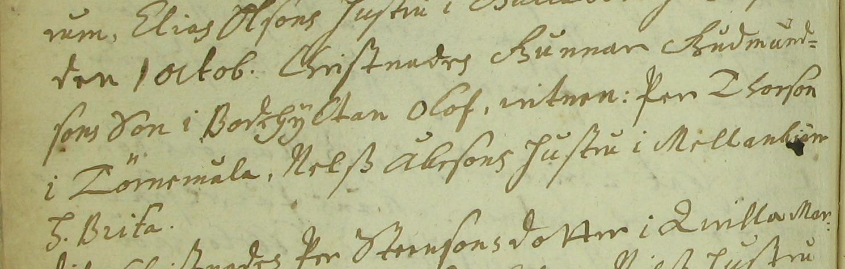 rum, Elias Olsons Hustru i
den 1 Octob. Christnades Gunnar Gudmund=
sons Son i Bodhyltan Olof, witnen: Per Thorson
i Törnemåla, Nelß Åkesons Hustru i Mellanbäm
H. Brita.
Christnades Per Steensons dotter i Quilla Mar:
Hustru